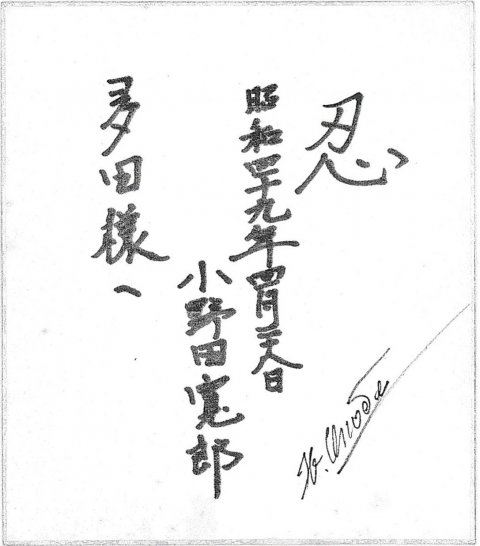 忍
昭和四十九年四月二十八日
小野田寛郎
多田様へ
H. Onoda